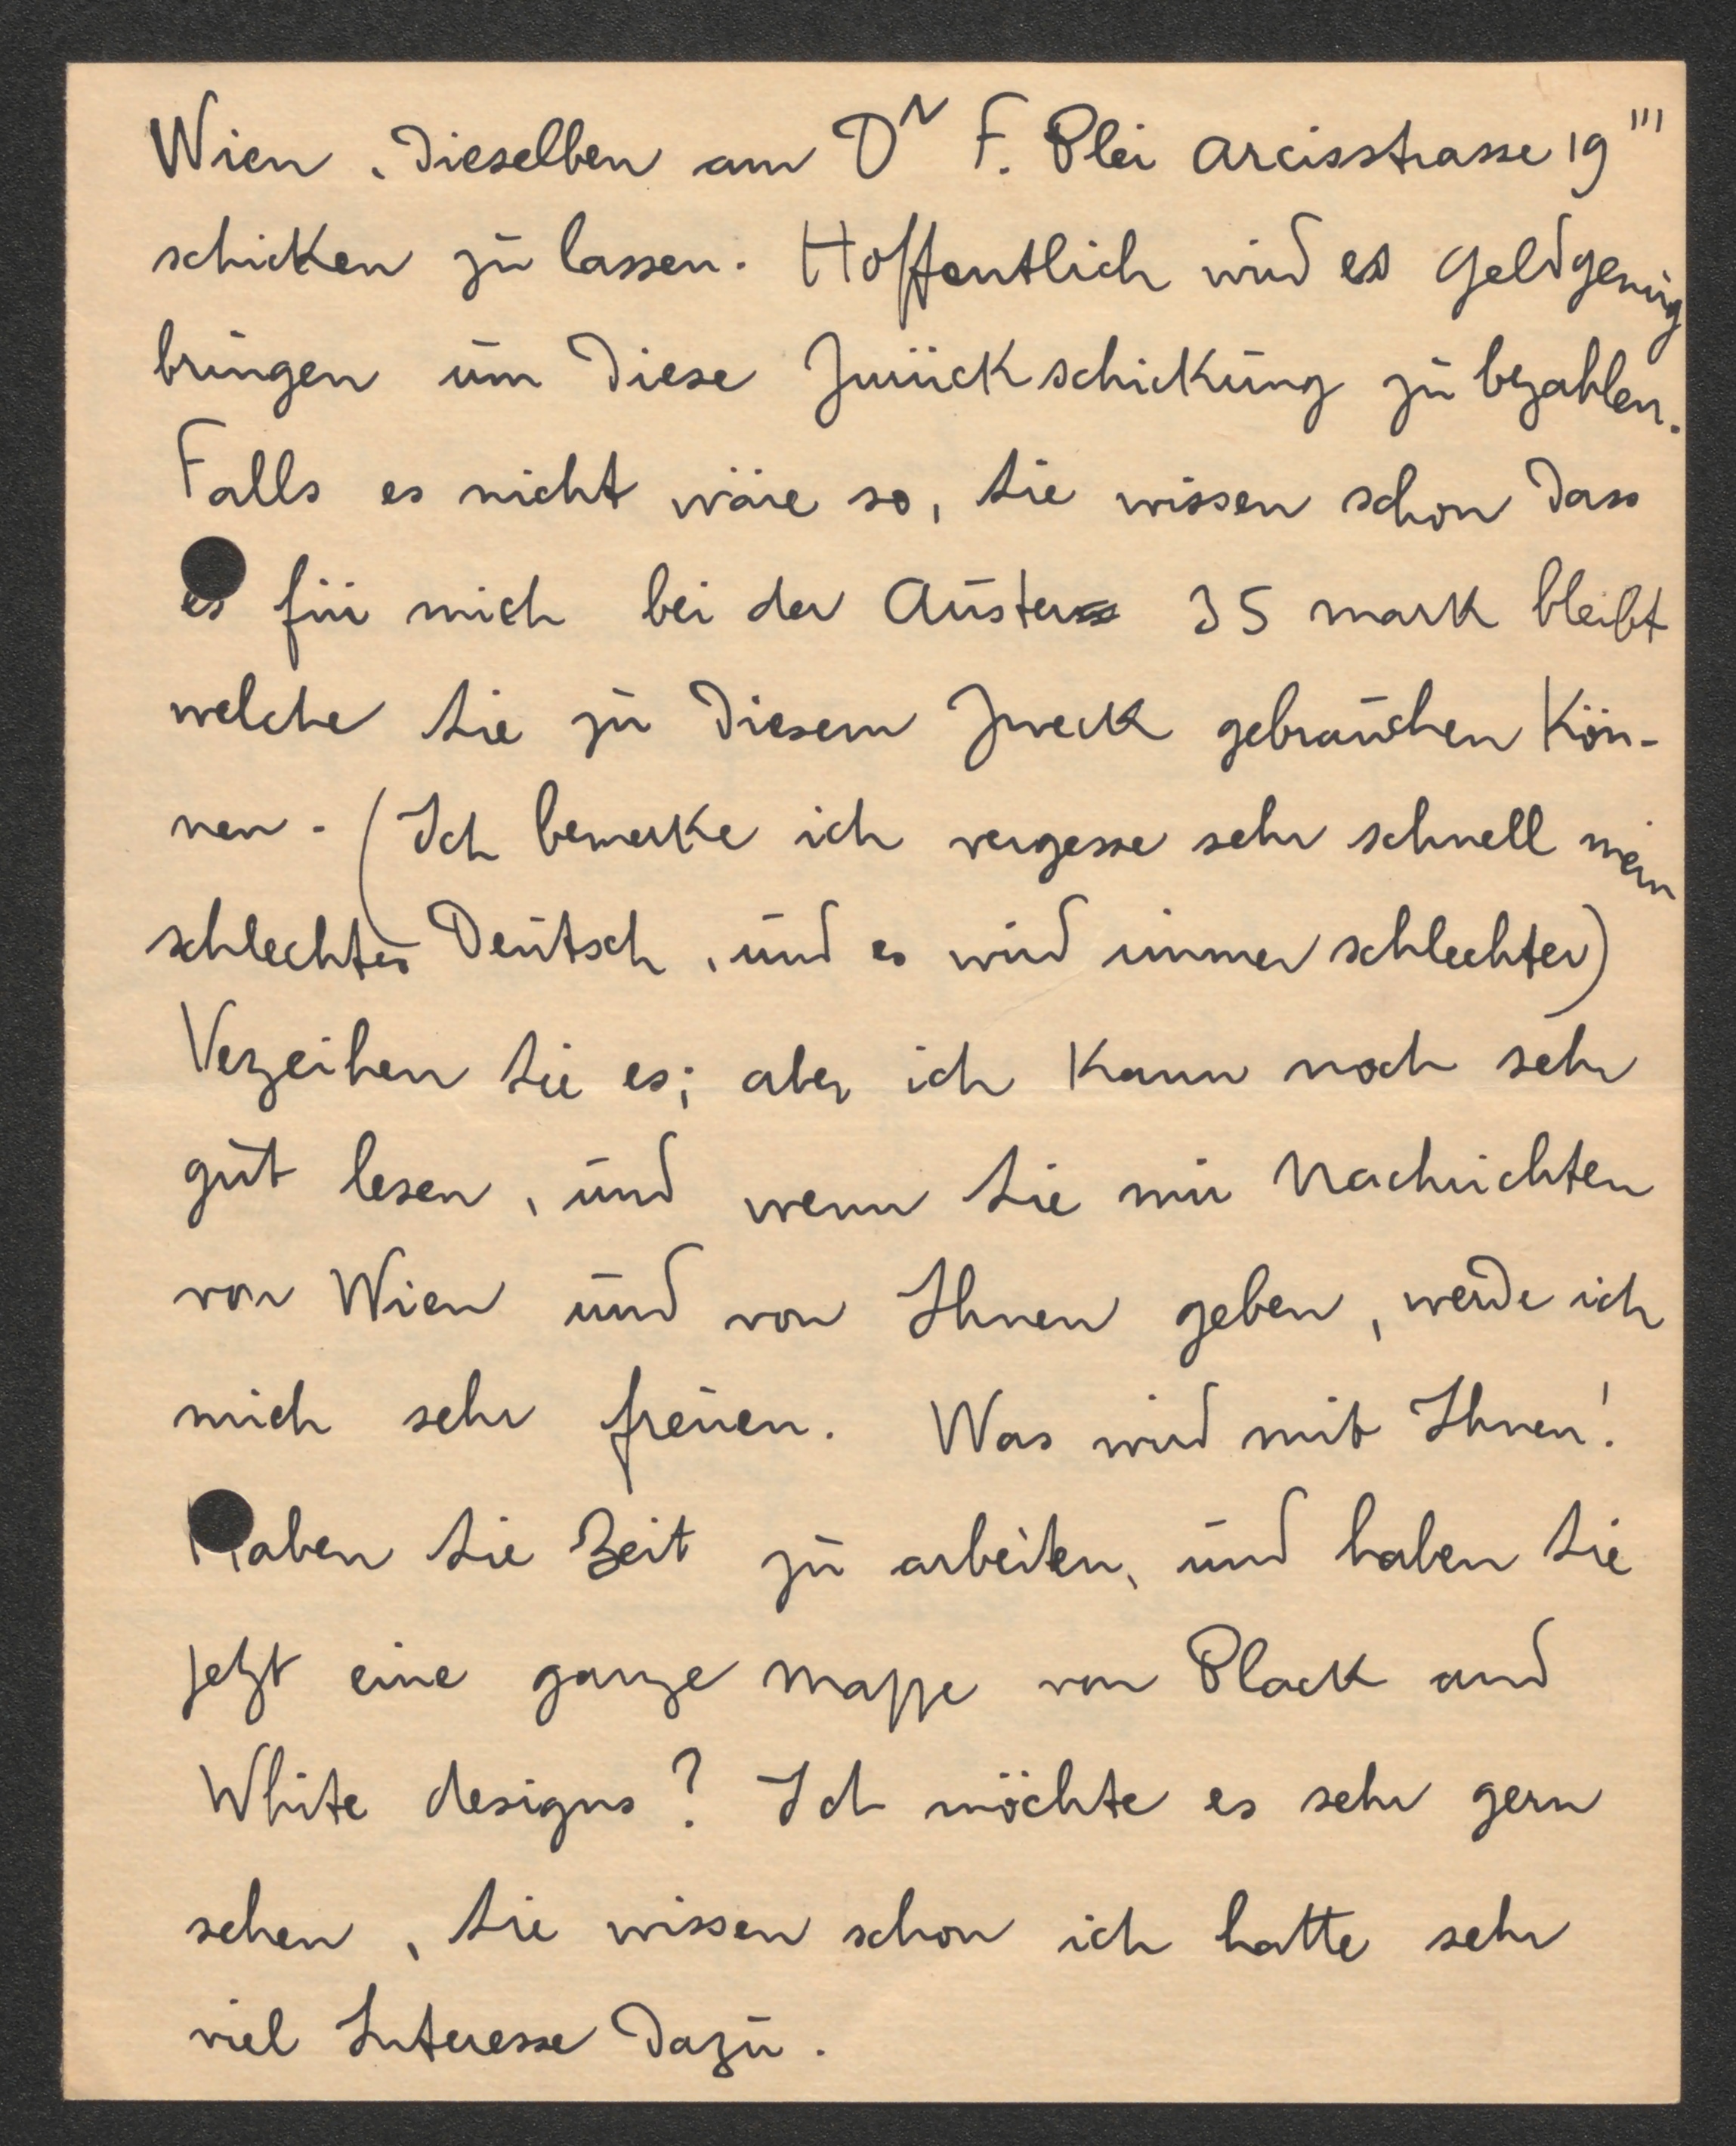 Wien, dieselben an Dr F. Blei Arcisstrasse 19 III
schicken zu lassen. Hoffentlich wird es Geldgenug
bringen um diese Zurückschickung zu bezahlen.
Falls es nicht wäre so, Sie wissen schon dass
es für mich bei der Auster 35 mark bleibt
welche Sie zu diesem Zweck gebrauchen Kön-
nen - (Ich bemerke ich vergesse sehr schnell mein
schlechtes Deutsch, und es wird immer schlechter)
Verzeihen Sie es; aber ich Kann noch sehr
gut lesen, und wenn Sie mir Nachrichten
von Wien und von Ihnen geben, werde ich
mich sehr freuen. Was wird mit Ihnen!
Haben Sie Zeit zu arbeiten, und haben Sie
jetzt eine ganze Mappe von Black and
White designs? Ich möchte es sehr gern
sehen, Sie wissen schon ich hatte sehr
viel Interesse dazu.